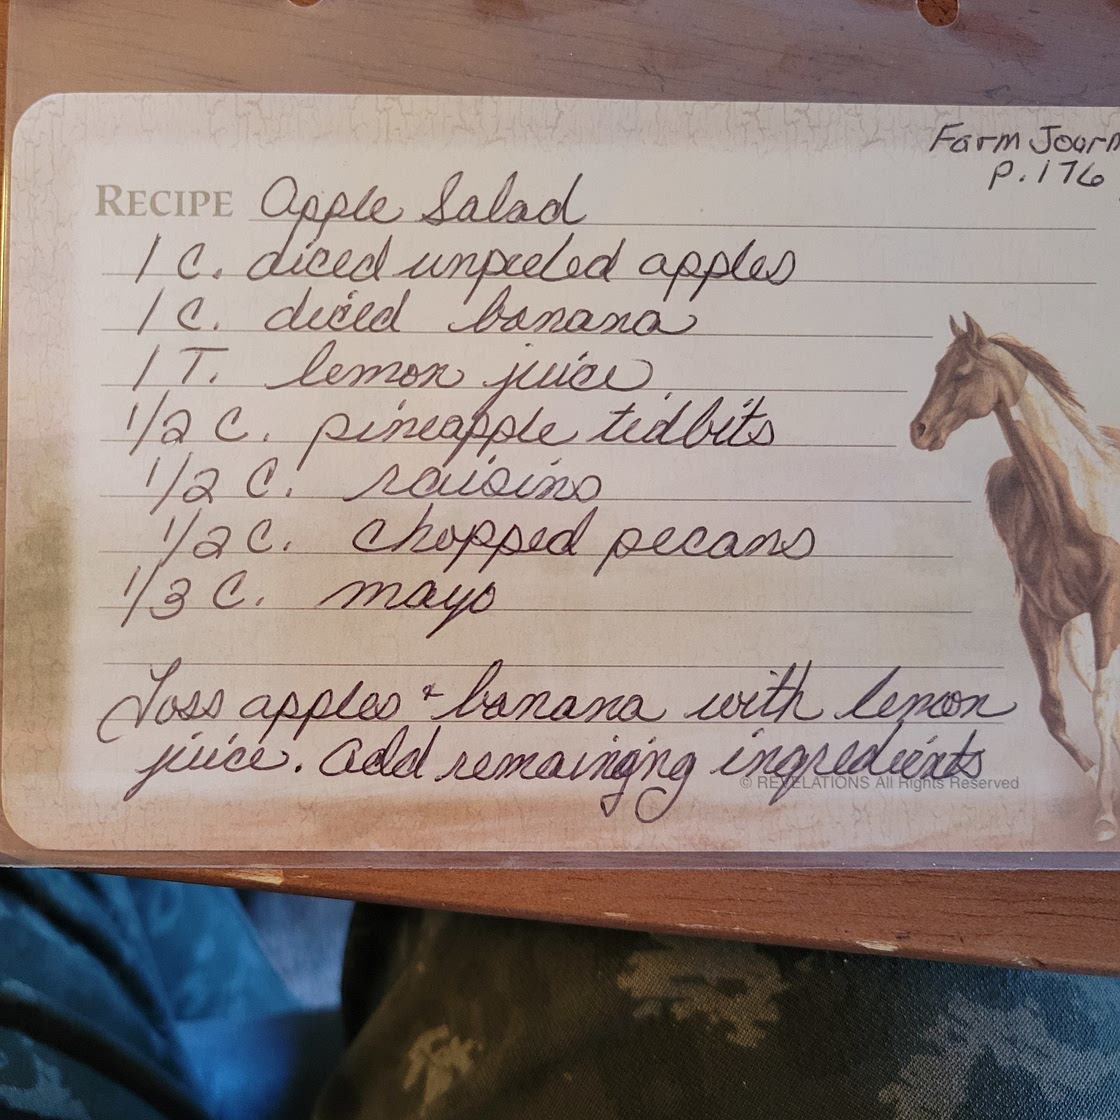 Farm Journ
p. 176
RECIPE Apple Salad
1 C. diced unpeeled apples
1 C. diced banana
1 T. lemon juice
1/2 C. pineapple tidbits
1/2 C. raisins
1/2 C. chopped pecans
1/3 C. mayo
Toss apples + banana with lemon
juice. Add remainging ingredients
© REVELATIONS All Rights Reserved